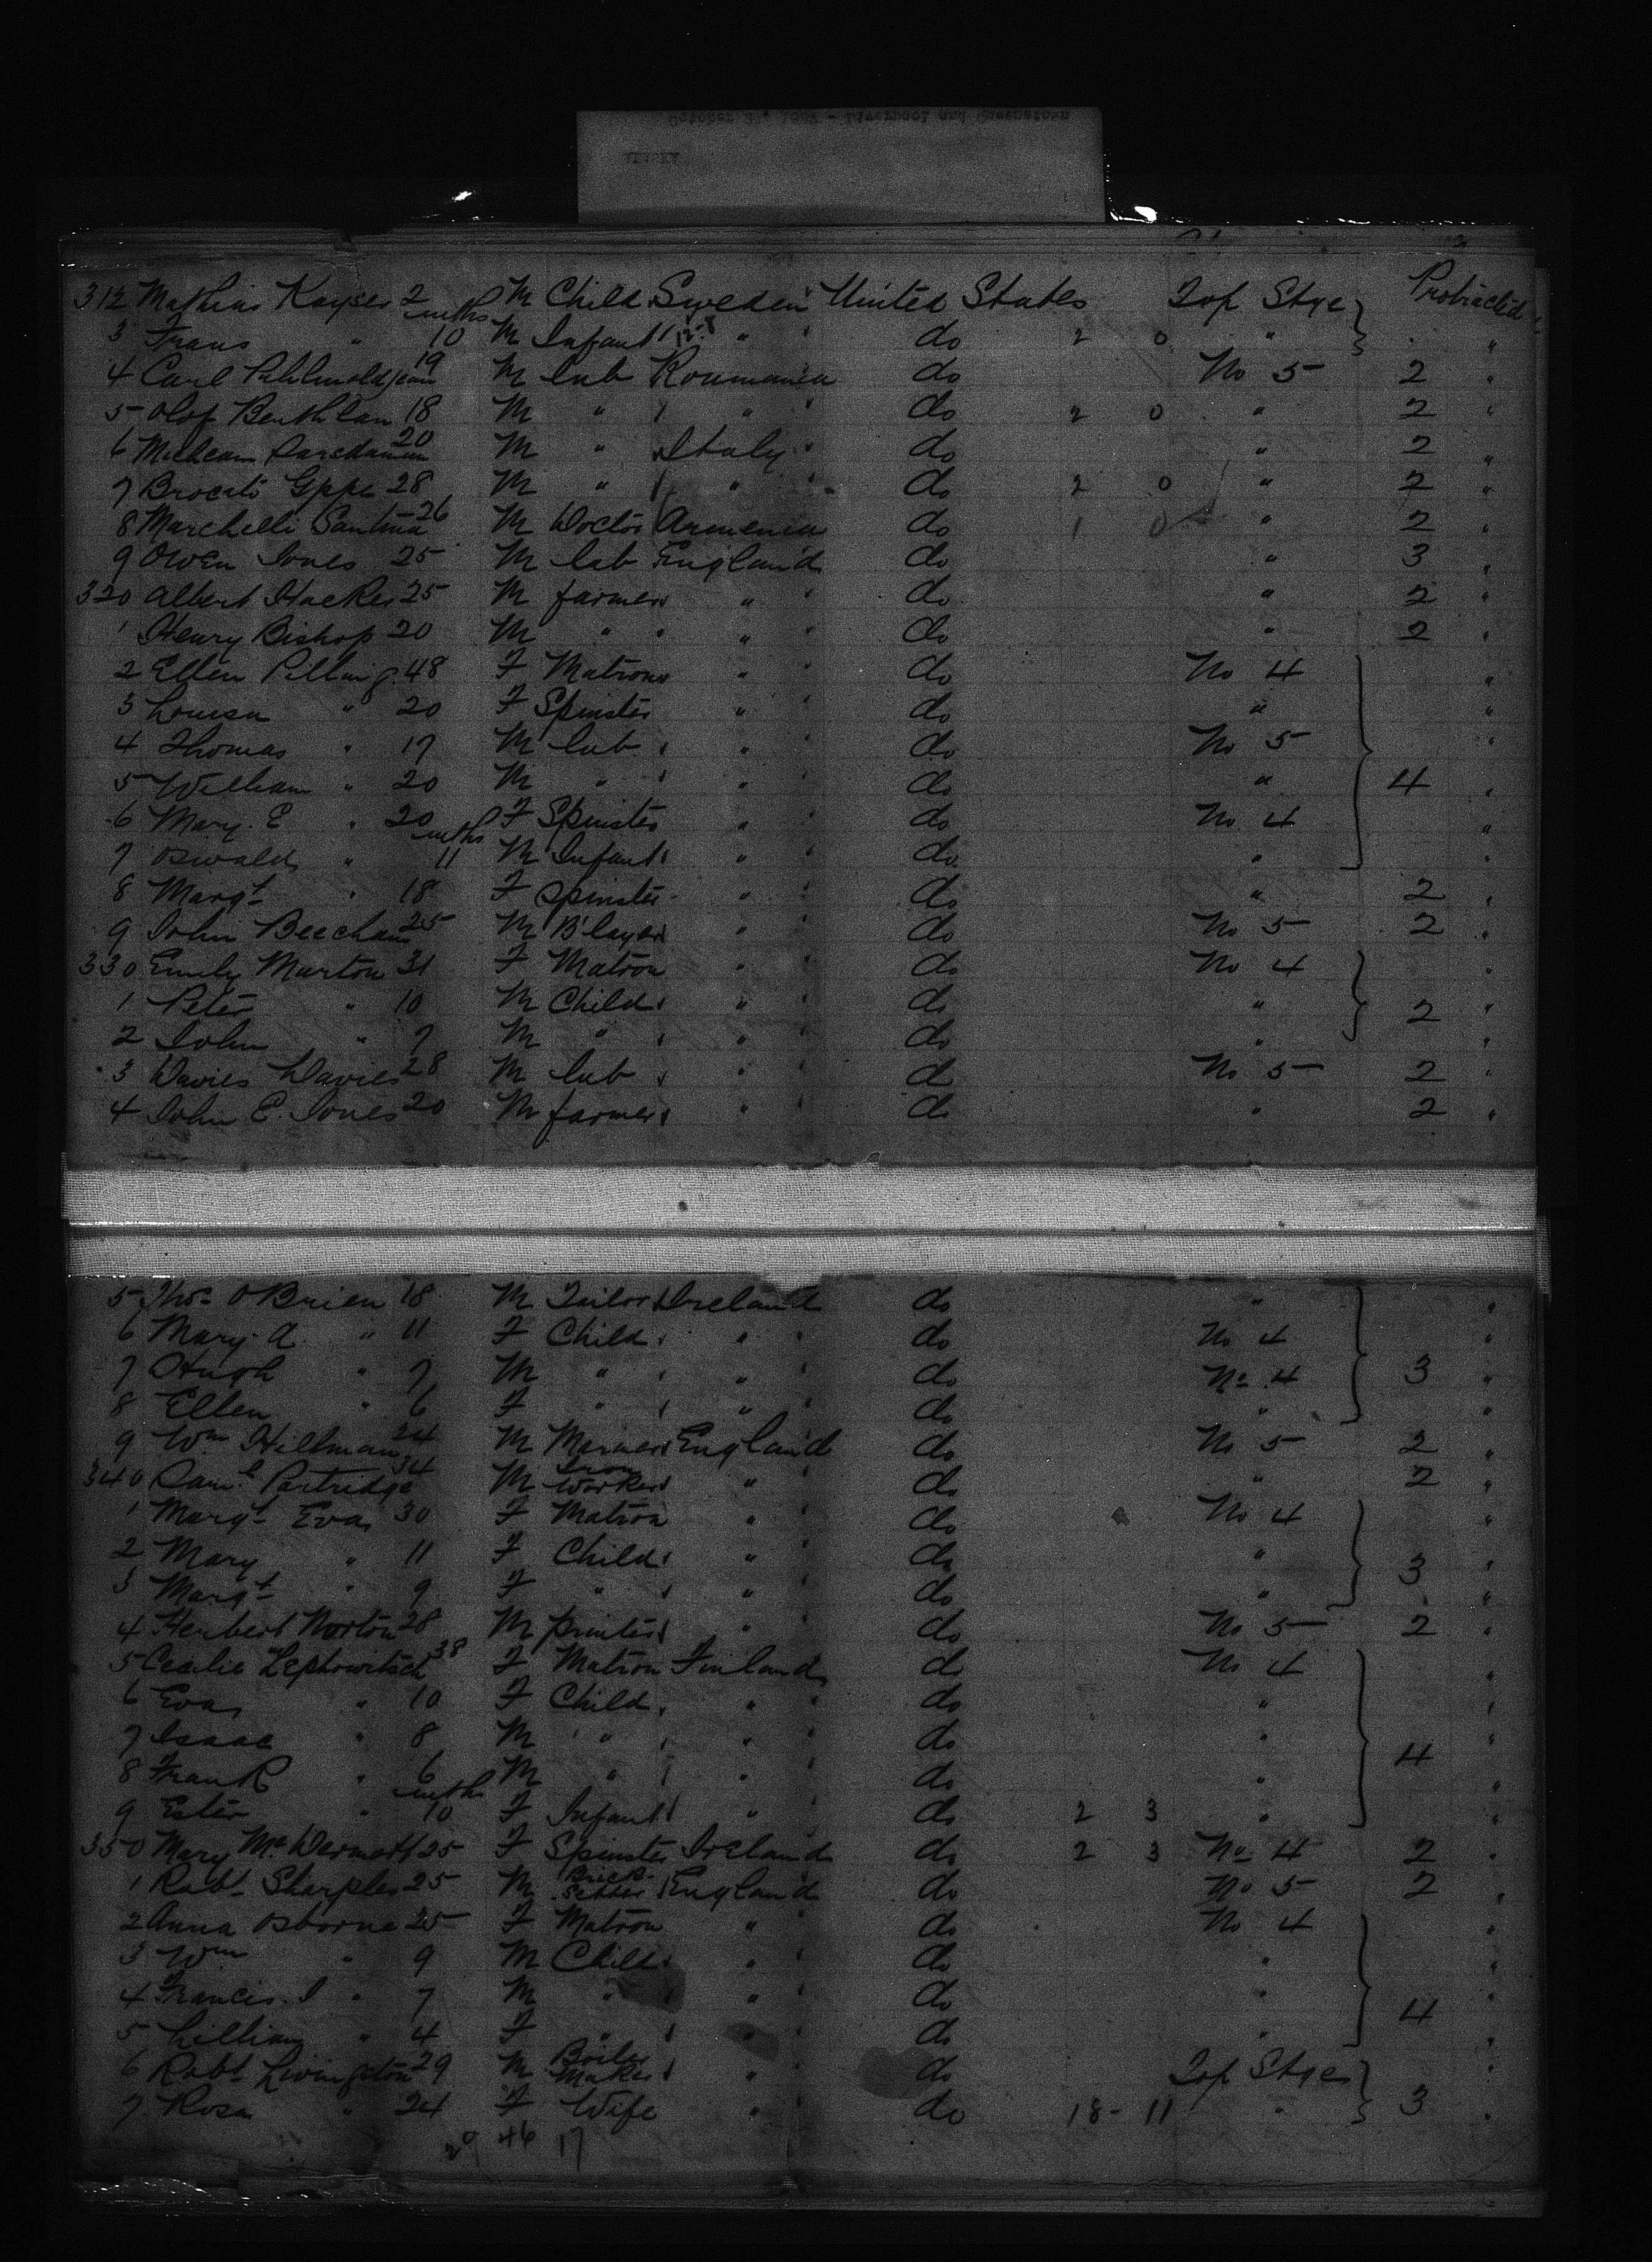 312 Mathias Kayser 2 M Child Sweden United States Top Stge Protracted
3 Frans " mths 10 M Infant " do 2 0 " "
4 Carl 19 M lab Roumania do No 5 2 "
5 Olof 18 M " " do 2 0 " 2 "
6 20 M " Italy do " 2 "
7 Brocato Gppe 28 M " " do 2 0 " 2 "
8 Marchelli Santina 26 M Doctor Armenia do 1 0 " 2 "
9 Owen Jones 25 M lab England do " 3 "
320 Albert Hacker 25 M farmer " do " 2 "
1 Henry Bishop 20 M " " do " 2 "
2 Ellen Pilling 48 F Matron " do No 4 "
3 Louisa " 20 F Spinster " do " "
4 Thomas " 17 M lab " do No 5 "
5 William " 20 M " " do " 4 "
6 Mary. E " 20 F Spinster " do No 4 "
7 Oswald " mths 11 M Infant " do " "
8 Margt " 18 F Spinster " do " 2 "
9 John Beecham 25 M B'layer " do No 5 2 "
330 Emily Marton 31 F Matron " do No 4 "
1 Peter " 10 M Child " do " 2 "
2 John " 7 M " " do "
3 Davies Davies 28 M lab " do No 5 2 "
4 John E. Jones 20 M farmer " do " 2 "
5 Thos O'Brien 18 M Tailor Ireland do " "
6 Mary A. " 11 F Child " do No 4 "
7 Hugh " 7 M " " do No 4 3 "
8 Ellen " 6 F " " do " "
9 Wm Hillman 24 M England do No 5 2 "
340 Saml Partridge 34 M Iron Worker " do " 2 "
1 Margt Evas 30 F Matron " do No 4 "
2 Mary " 11 F Child " do " 3 "
3 Margt " 9 F " " do " "
4 Herbert Norton 28 M printer " do No 5 2 "
5 Cecilie Lephowitsch 38 F Matron Finland do No 4 "
6 Eva " 10 F Child " do " "
7 Isaac " 8 M " " do " "
8 Frank " 6 M " " do " 4 "
9 Ester " mths 10 F Infant " do 2 3 " "
350 Mary McDermott 25 F Spinster Ireland do 2 3 No 4 2 "
1 Robt Sharples 25 M Brick Setter England do No 5 2 "
2 Anna Osborne 25 F Matron " do No 4 "
3 Wm " 9 M Child " do " "
4 Francis. J " 7 M " " do " 4 "
5 Lillian " 4 F " " do " "
6 Robt Livingston 29 M Boiler Maker " do Top Stge "
7 Rosa " 24 F Wife " do 18-11 " 3 "
29 46 17